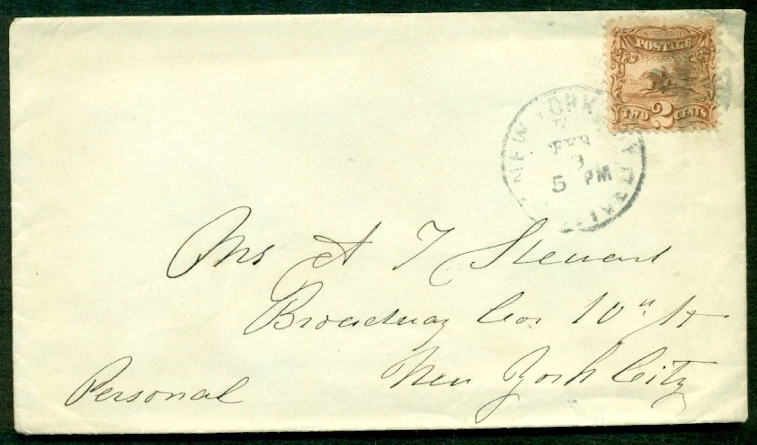 UNITED STATES
POSTAGE
TWO 2 CENTS
NEW YORK
FEB
5 PM
Mrs A T Stewart
Broadway Cor 10th St
New York City
Personal